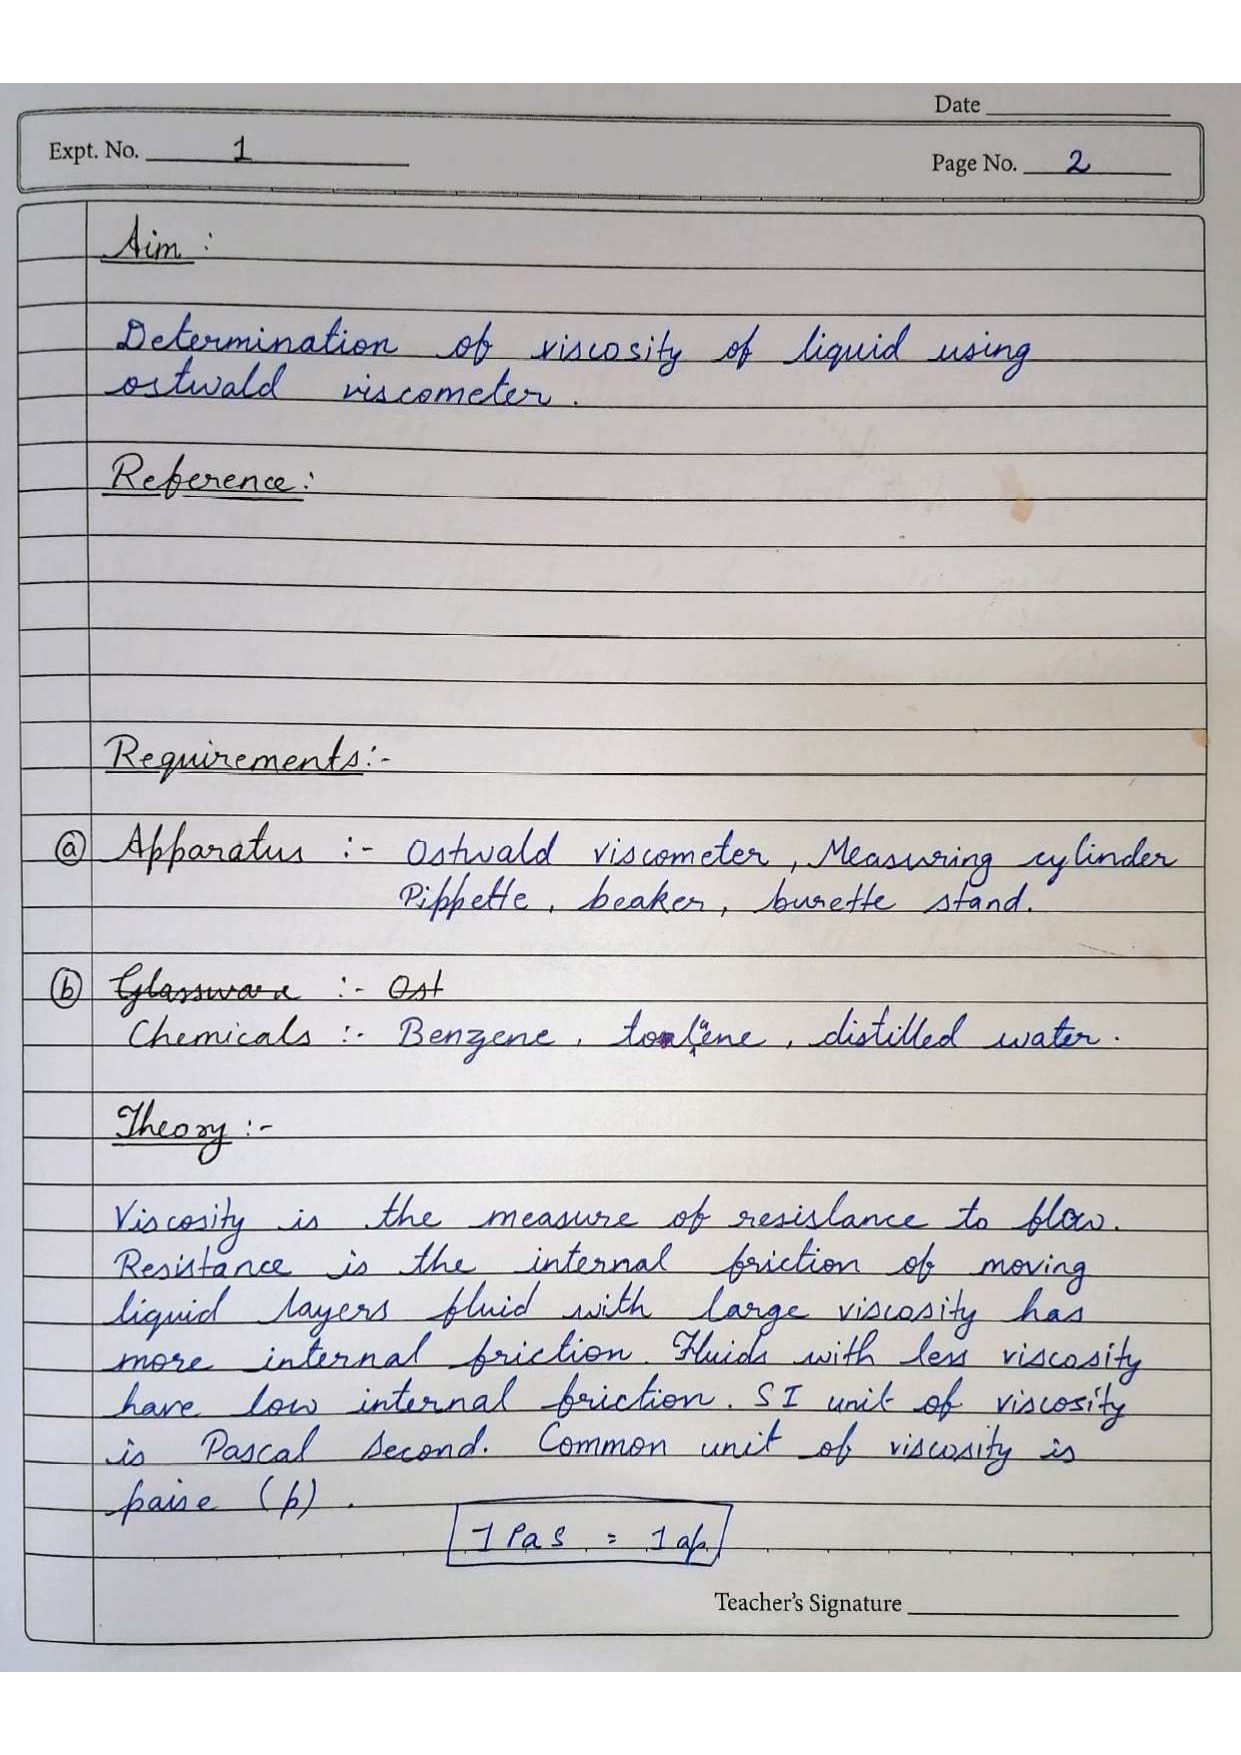 Date
Expt. No. 1
Page No. 2
Aim :
Determination of viscosity of liquid using
ostwald viscometer.
Reference :
Requirements:-
(a) Apparatus :- Ostwald viscometer, Measuring cylinder
Pippette, beaker, burette stand.
(b) Glassware :- Ost
Chemicals :- Benzene, distilled water.
Theory :-
Viscosity is the measure of resislance to flow.
Resistance is the internal friction of moving
liquid layers fluid with large viscosity has
more internal friction. Fluids with less viscosity
have low internal friction. SI unit of viscosity
is Pascal second. Common unit of viscosity is
paise (p).
1 Pas = 1
Teacher's Signature